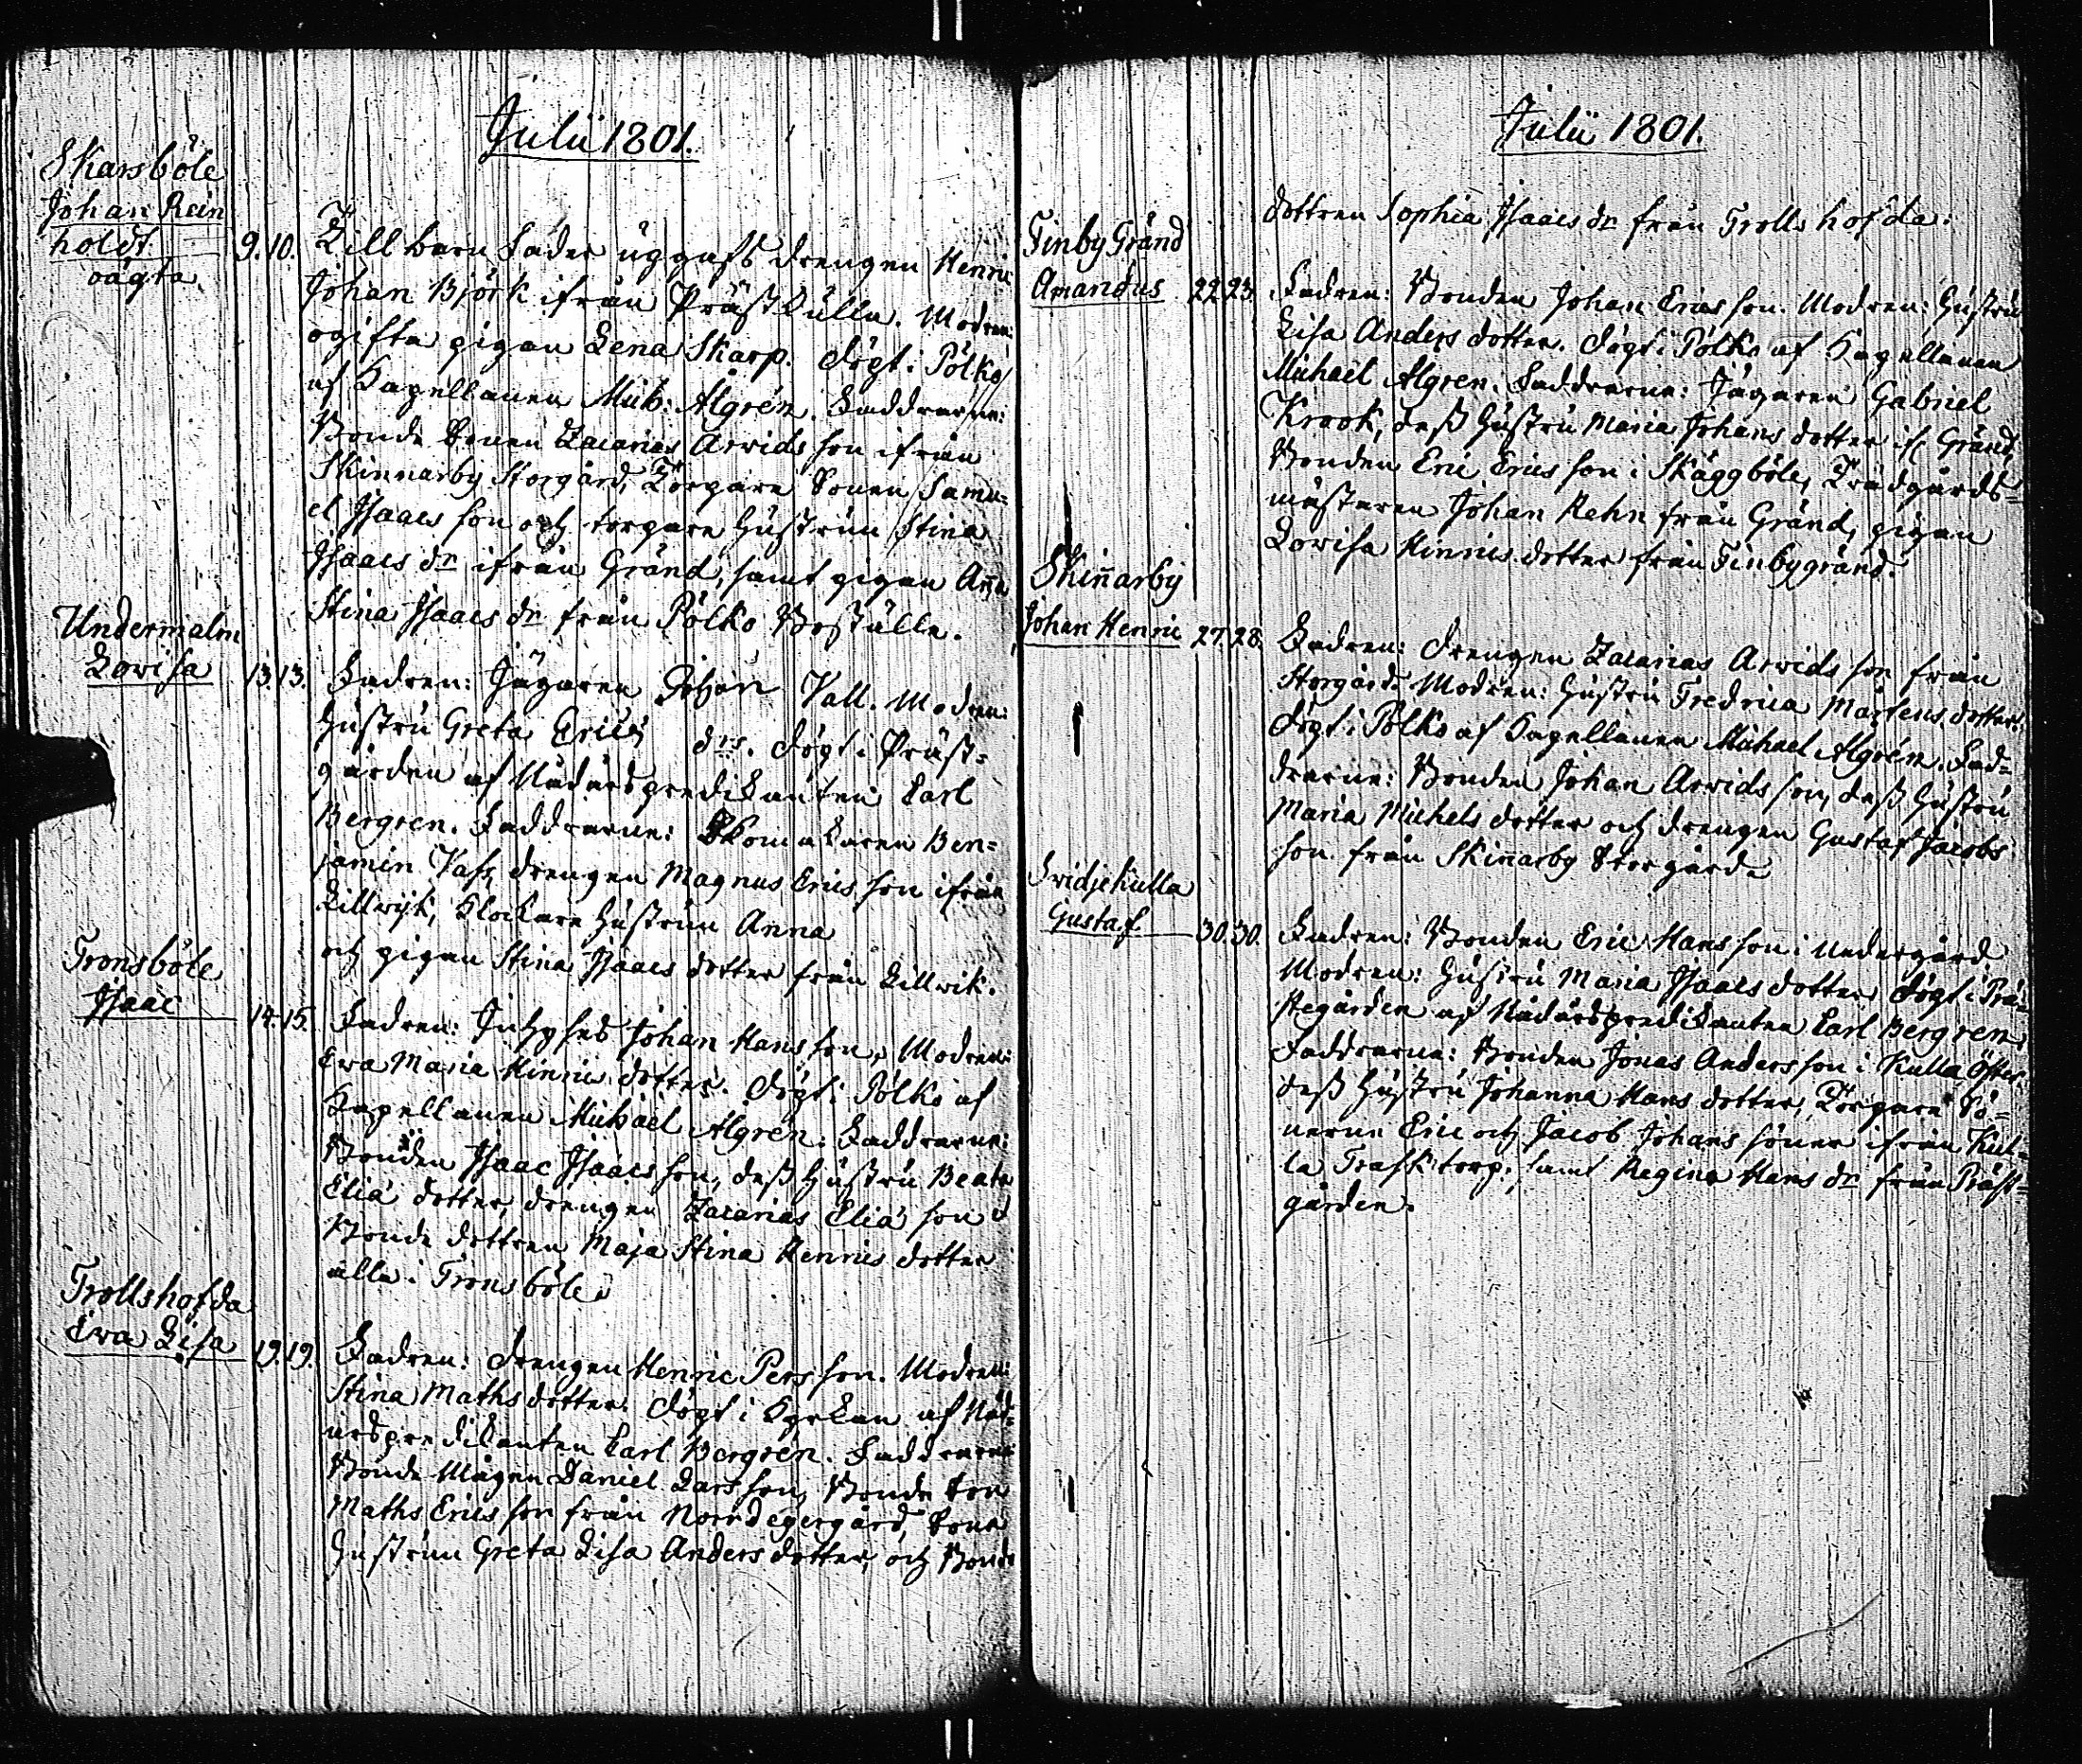 Julii 1801.
Skarsböle
Johan Rein
holdt
oägta
9. 10. Till barn Fader uppgafs drengen Henric
Johan Björk ifrån Prästkulla. Modren:
ogifta pigan Lena Skarp. döpt i Pölkö
af Kapellanen Mich: Algrén. Faddrarne:
Bonde Sonen Zacarias Arvids son ifrån
Skinnarby Storgård, Torpare Sonen Samu=
el Isaacs son och torpare Hustrun Stina
Isaacs dr ifrån Gränd, samt pigan Aña
Stina Isaacs dr från Pölkö Boställe.
Undermalm
Lovisa
13. 13. Fadren: Jägaren Johan Vall. Modren:
Hustru Greta Erics drs. döpt i Präst=
gården af Nådårspredikanten Carl
Bergren. Faddrarne: Skomakaren Ben=
jamin Vass, drengen Magnus Erics son ifrån
Lillwik, Klockare Hustrun Anna
och pigan Stina Isaacs dotter från Lillwik.
Tronsböle
Isaac
14. 15. Fadren: Johan Hans son, Modren:
Eva Maria Hinrics dotter. döpt i Pölkö af
Kapellanen Michaël Algren. Faddrarne:
Bonden Isaac Isaacs son, dess Hustru Beata
Eliæ dotter, drengen Zacarias Eliæ son
Bonde dottren Maja Stina Henrics dotter
alla i Tronsböle
Trollshofda
Eva Lisa
19. 19. Fadren: drengen Henric Pers son. Modren:
Stina Maths dotter. döpt i Kyrkan af Nåd=
årspredikanten Carl Bergrén. Faddrarne
Bonde Mågen Daniel Lars son, Bonde Son
Maths Erics son från Norrdegergård, Bonde
Hustrun Greta Lisa Anders dotter, och Bonde
Julii 1801.
dottren Sophia Isaacs dr från Trollshofda.
Finby Gränd
Amandus
22. 23. Fadren: Bonden Johan Erics son. Modren: Hustru
Lisa Anders dotter. döpt i Pölkö af Kapellanen
Michaël Algren. Faddrarne: Jägaren Gabriel
Krook, dess Hustru Maria Johans dotter if. Gränd,
Bonden Eric Erics son i Skäggböle, Trädgårds=
mästaren Johan Rehn från Gränd, pigan
Lovisa Hinrics dotter från Finbygränd.
Skiñarby
Johan Henric
27. 28. Fadren: drengen Zacarias Arvids son från
Storgård. Modren: Hustru Fredrica Mårtens dotter.
döpt i Pölkö af Kapellanen Michael Algrén. Fad=
drarne: Bonden Johan Arvids son, dess Hustru
Maria Michels dotter och drengen Gustaf Jacobs
son. från Skiñarby Storgård
Svidjekulla
Gustaf
30. 30. Fadren: Bonden Eric Hans son i Undergård
Modren: Hustru Maria Isaacs dotter döpt i Prä=
stegården af Nådårspredikanten Carl Bergren.
Faddrarne: Bonden Jonas Anders son i Kulla Öster
dess Hustru Johanna Hans dotter, Torpare Sö=
nerne Eric och Jacob Johans söner ifrån Kul=
la Trask torp, samt Regina Hans dr från Präst=
gården.